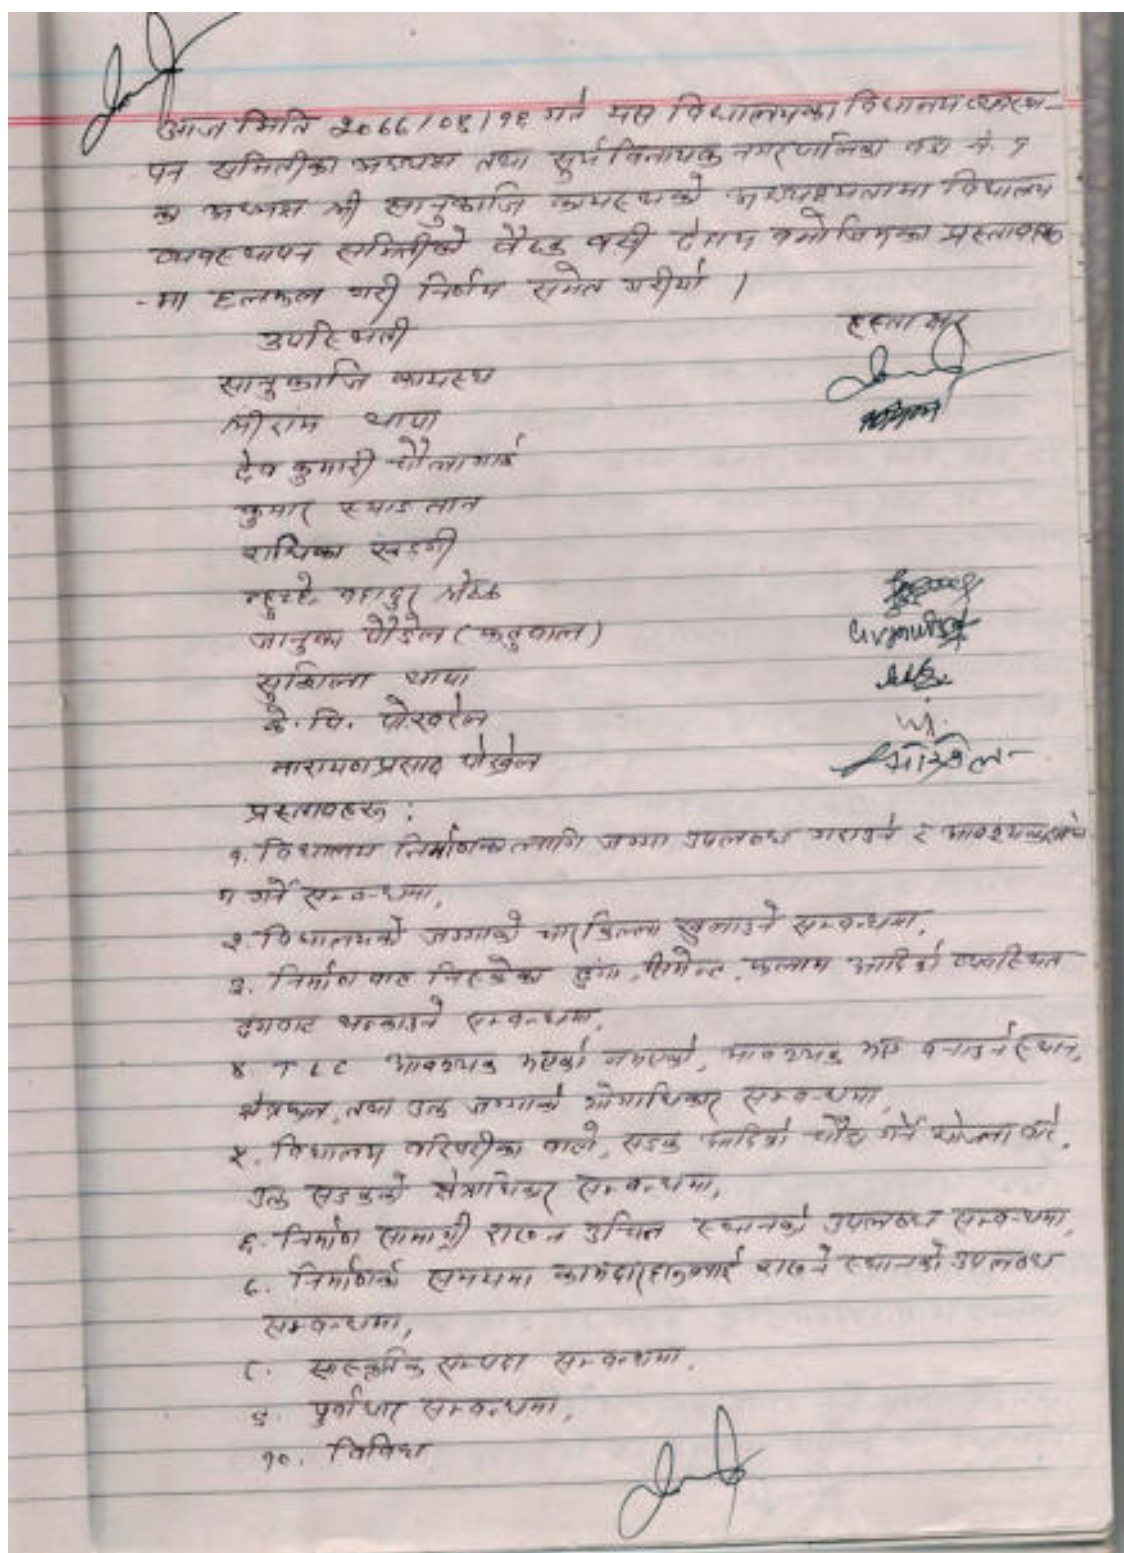 आज मिति २०७७/०५/१९ गते यस विद्यालयका विद्यालय व्यवस्था-
पन समितीका अध्यक्ष तथा सुर्य विनायक नगरपालिका वडा नं. १
का अध्यक्ष श्री सानुकाजि कायस्थको अध्यक्षतामा विद्यालय
व्यवस्थापन समितीको बैठक बसी देहाय बमोजिमका प्रस्तावहरू
-मा छलफल गरी निर्णय समेत गरीयो ।
उपस्थिती हस्ताक्षर
सानुकाजि कायस्थ
श्रीराम थापा
देव कुमारी चौलागाई
कुमार स्याङतान
राधिका खड्गी
बहादुर
जानुका पौडेल (कटुवाल)
सुशिला थापा
के. पि. पोखरेल
नारायणप्रसाद पोख्रेल
प्रस्तावहरू :
१. विद्यालय निर्माणका लागि जग्गा उपलब्ध गराउने र
गर्ने सम्बन्धमा,
२. विद्यालयको जग्गाको चारकिल्ला खुलाउने सम्बन्धमा,
३. निर्माण बाट निस्केका ढुंगा, सिमेन्ट, फलाम आदिको व्यवस्थित
ढंगबाट सम्बन्धमा,
४. TLC आवश्यक भएको नभएको, आवश्यक भए बनाउने स्थान,
क्षेत्रफल, तथा उक्त जग्गाको भोगाधिकार सम्बन्धमा,
५. विद्यालय वरिपरीका बाटो, सडक आदिको चौडा गर्ने योजना बारे,
उक्त सडकको क्षेत्राधिकार सम्बन्धमा,
६. निर्माण सामाग्री राख्न उचित स्थानको उपलब्ध सम्बन्धमा,
७. निर्माणको समयमा कामदारहरूलाई राख्ने स्थानको उपलब्ध
सम्बन्धमा,
८. सांस्कृतिक सम्पदा सम्बन्धमा,
९. पुर्वाधार सम्बन्धमा,
१०. विविध